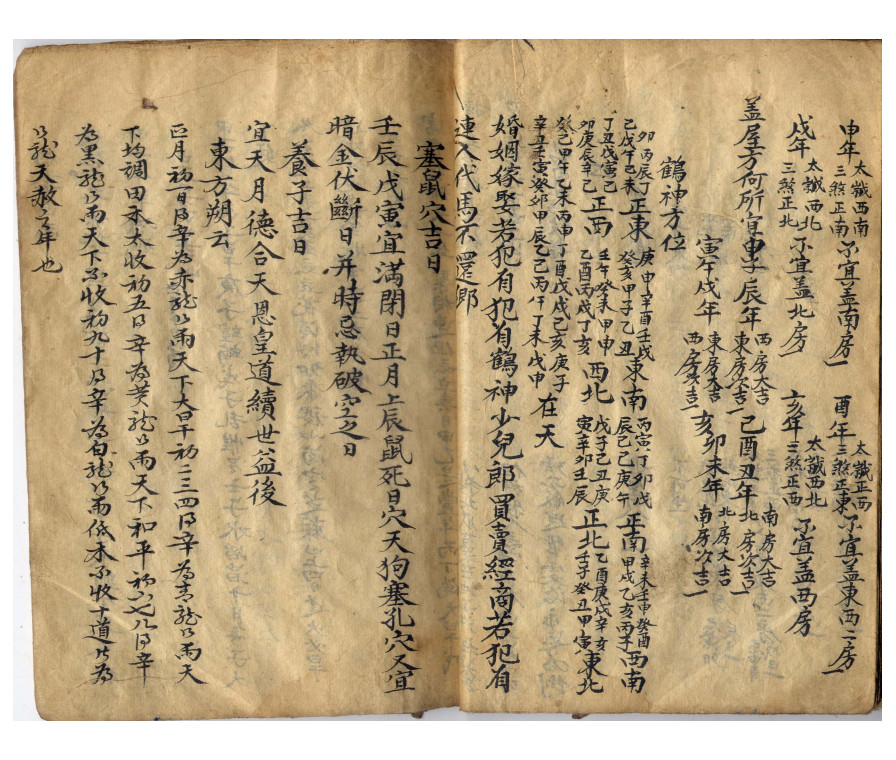 申年太歲西南三煞正南不宜蓋南房 酉年太歲正西三煞正東不宜蓋東西二房
戌年太歲西北三煞正北不宜蓋北房 亥年太歲西北三煞正西不宜蓋西房
蓋屋方何所宜申子辰年西房大吉東房次吉 己酉丑年南房大吉北房次吉
寅午戌年東房大吉西房次吉 亥卯未年北房大吉南房次吉
鶴神方位
卯丙辰丁己戊午己未正東庚申辛酉壬戌癸亥甲子乙丑東南丙寅丁卯戊辰己巳庚午正南辛未壬申癸酉甲戌乙亥丙子西南
丁丑戊寅己卯庚辰辛巳正西壬午癸未甲申乙酉丙戌丁亥西北戊子己丑庚寅辛卯壬辰正北乙酉庚戌辛亥壬子癸丑甲寅東北
癸巳甲午乙未丙申丁酉戊戌己亥庚子辛丑壬寅癸卯甲辰乙巳丙午丁未戊申在天
婚姻嫁娶若犯有犯有鶴神少兒郎買賣經商若犯有
連人代馬不還鄉
塞鼠穴吉日
壬辰戊寅宜滿閉日正月上辰鼠死日穴天狗塞孔穴又宜
暗金伏斷日并時忌執破空之日
養子吉日
宜天月德合天恩皇道續世益後
東方朔云
正月初一日得辛為赤龍治雨天下大旱初二三四得辛為青龍治雨天
下均調田禾太收初五得辛為黃龍治雨天下和平初六七八得辛
為黑龍治雨天下不收初九十得辛為白龍治雨低禾不收十道此為
治龍天赦之年也